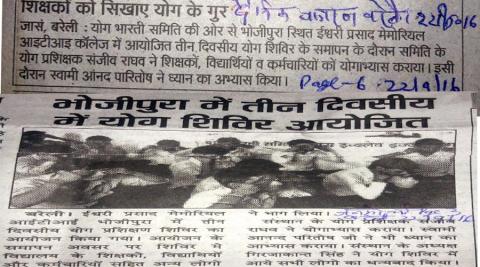 शिक्षकों को सिखाए योग के गुर
जासं, बरेली : योग भारती समिती की ओर से भोजीपुरा स्थित ईश्वरी प्रसाद मेमोरियल
आइटीआइ कॉलेज में आयोजित तीन दिवसीय योग शिविर के समापन के दौरान समिति के
योग प्रशिक्षक संजीव राघव ने शिक्षकों, विद्यार्थियों व कर्मचारियों को योगाभ्यास कराया। इसी
दौरान स्वामी आंनद पारितोष ने ध्यान का अभ्यास किया।
Page-6 22/9/16
भोजीपुरा में तीन दिवसीय
में योग शिविर आयोजित
बरेली। ईश्वरी प्रसाद मेमोरियल
आईटीआई भोजीपुरा में तीन
दिवसीय योग प्रशिक्षण शिविर का
आयोजन किया गया। आयोजन के
समापन अवसर पर शिविर में
विद्यालय के शिक्षकों, विद्यार्थियों
और कर्मचारियों सहित अन्य लोगों
ने भाग लिया।
संस्थान के योग प्रशिक्षक संजीव
राघव ने योगाभ्यास कराया। स्वामी
आनन्द परितोष जी ने भी ध्यान का
अभ्यास कराया। संस्थान के अध्यक्ष
गिरजाकान्त सिंह ने योग शिविर में
आये सभी लोगों का धन्यवाद किया।